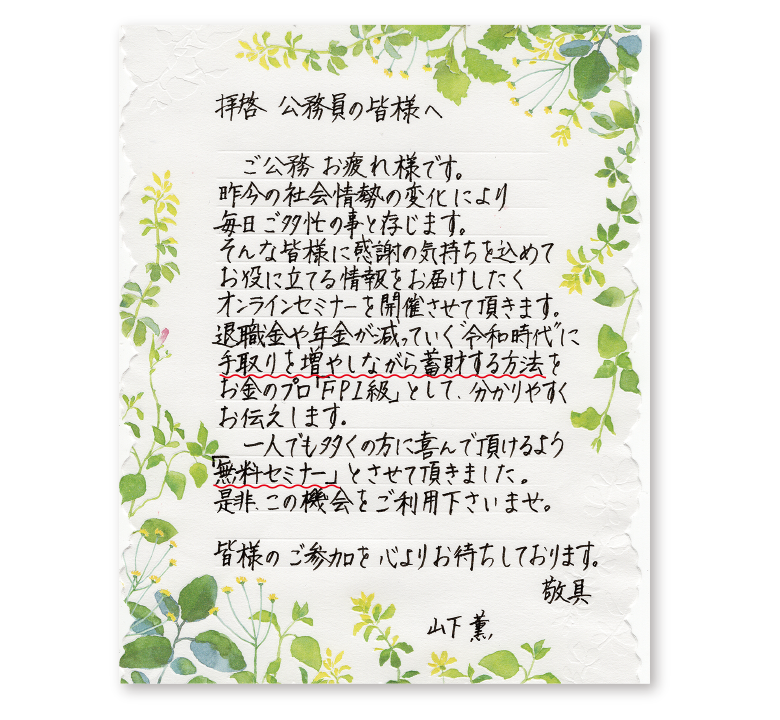 拝啓 公務員の皆様へ
ご公務 お疲れ様です。
昨今の社会情勢の変化により
毎日ご多忙の事と存じます。
そんな皆様に感謝の気持ちを込めて
お役に立てる情報をお届けしたく
オンラインセミナーを開催させて頂きます。
退職金や年金が減っていく“令和時代”に
手取りを増やしながら蓄財する方法を
お金のプロ「FP1級」として、分かりやすく
お伝えします。
一人でも多くの方に喜んで頂けるよう
「無料セミナー」とさせて頂きました。
是非、この機会をご利用下さいませ。
皆様のご参加を心よりお待ちしております。
敬具
山下 薫